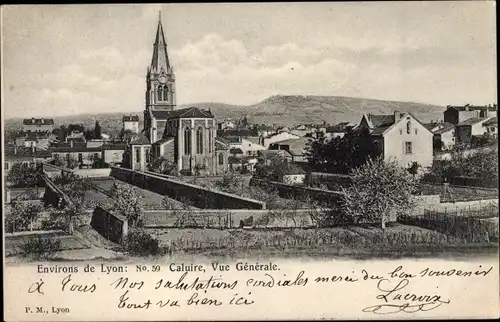 Environs de Lyon: No. 59 Caluire, Vue Générale.
à Tous Nos salutations cordiales merci du bon souvenir
tout va bien ici Lacroix
P. M., Lyon